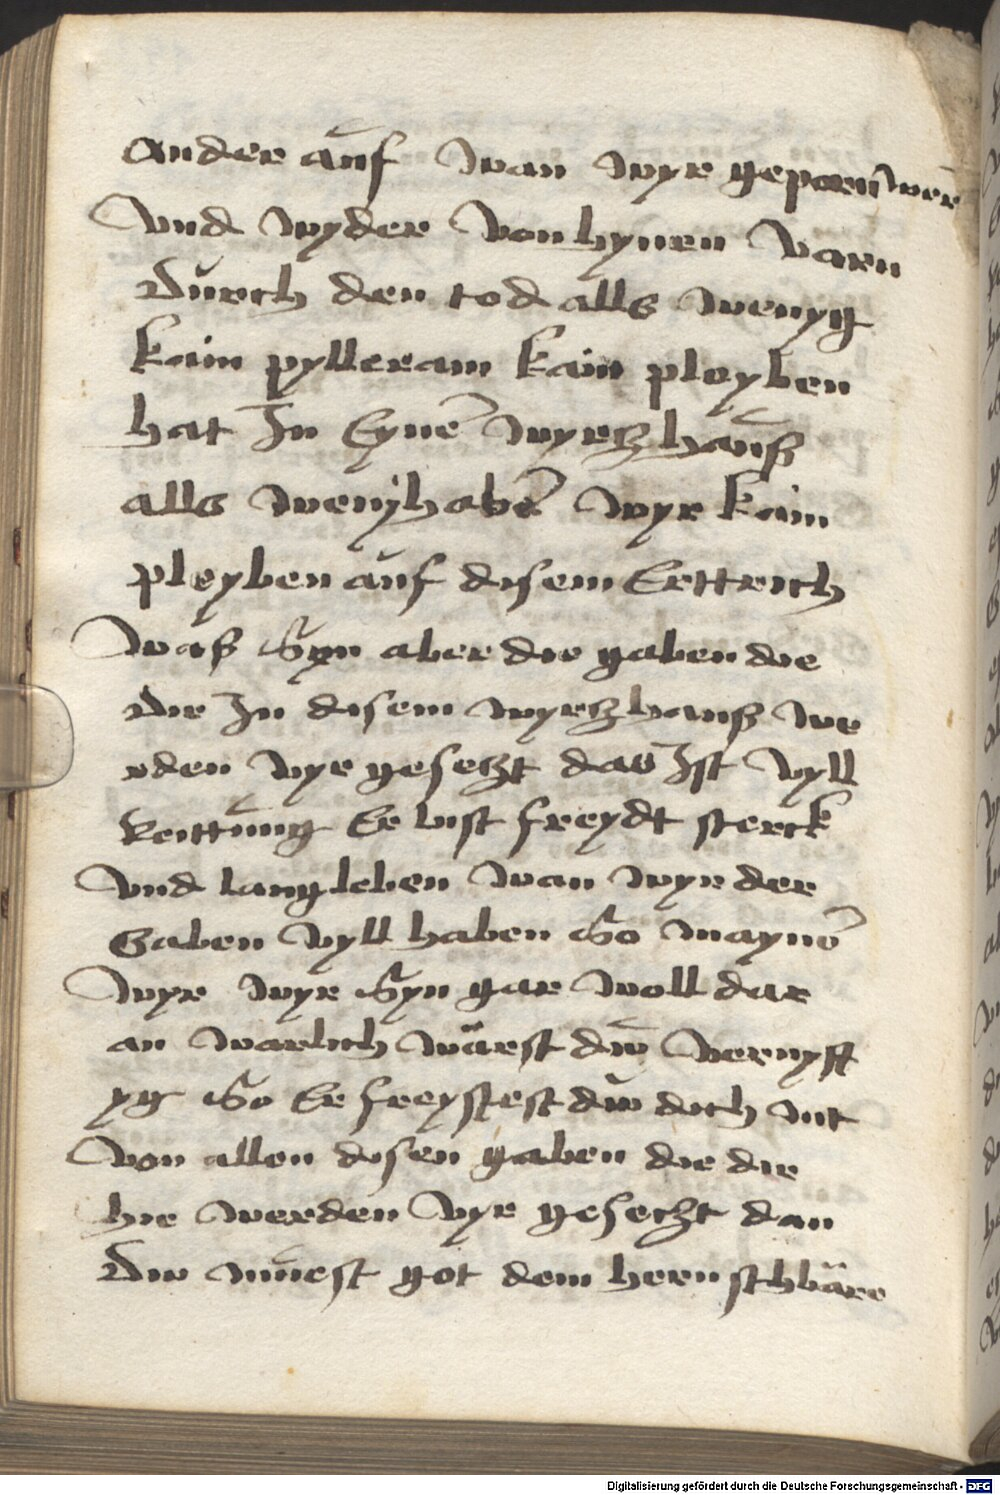 ander auf wan wyr geporn wer
vnd wyder von hynen varn
Durch den tod alls wenyg
kain pylleram kain pleyben
hat In Eynē wyrczhauß
alls weny habē wyr kain
pleyben auf disem Erttrich
waß Syn aber die gaben die
Die In disem wyrczhauß we
rden vyr geseczt das Ist vyll
Reittung Er lust freydt sterck
vnd lang leben wan wyr der
Gaben vyll haben So maynē
wyr wyr Syn gar woll dar
an warlich wärst dw vernyfft
yg So Er freystest dw dich nit
von allen disen gaben die die
hie werden vyr geseczt dan
Dw muest got dem hern schbäre
Digitalisierung gefördert durch die Deutsche Forschungsgemeinschaft - DFG